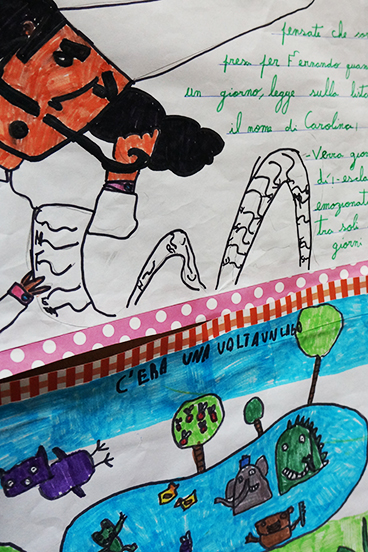 pensate che so
presa per Fernando quan
un giorno, legge sulla lista
il nome di Carolina!
-Verrà gio
dì!-escla
emozionat
tra soli
giorni
C'ERA UNA VOLTA UN LAGO